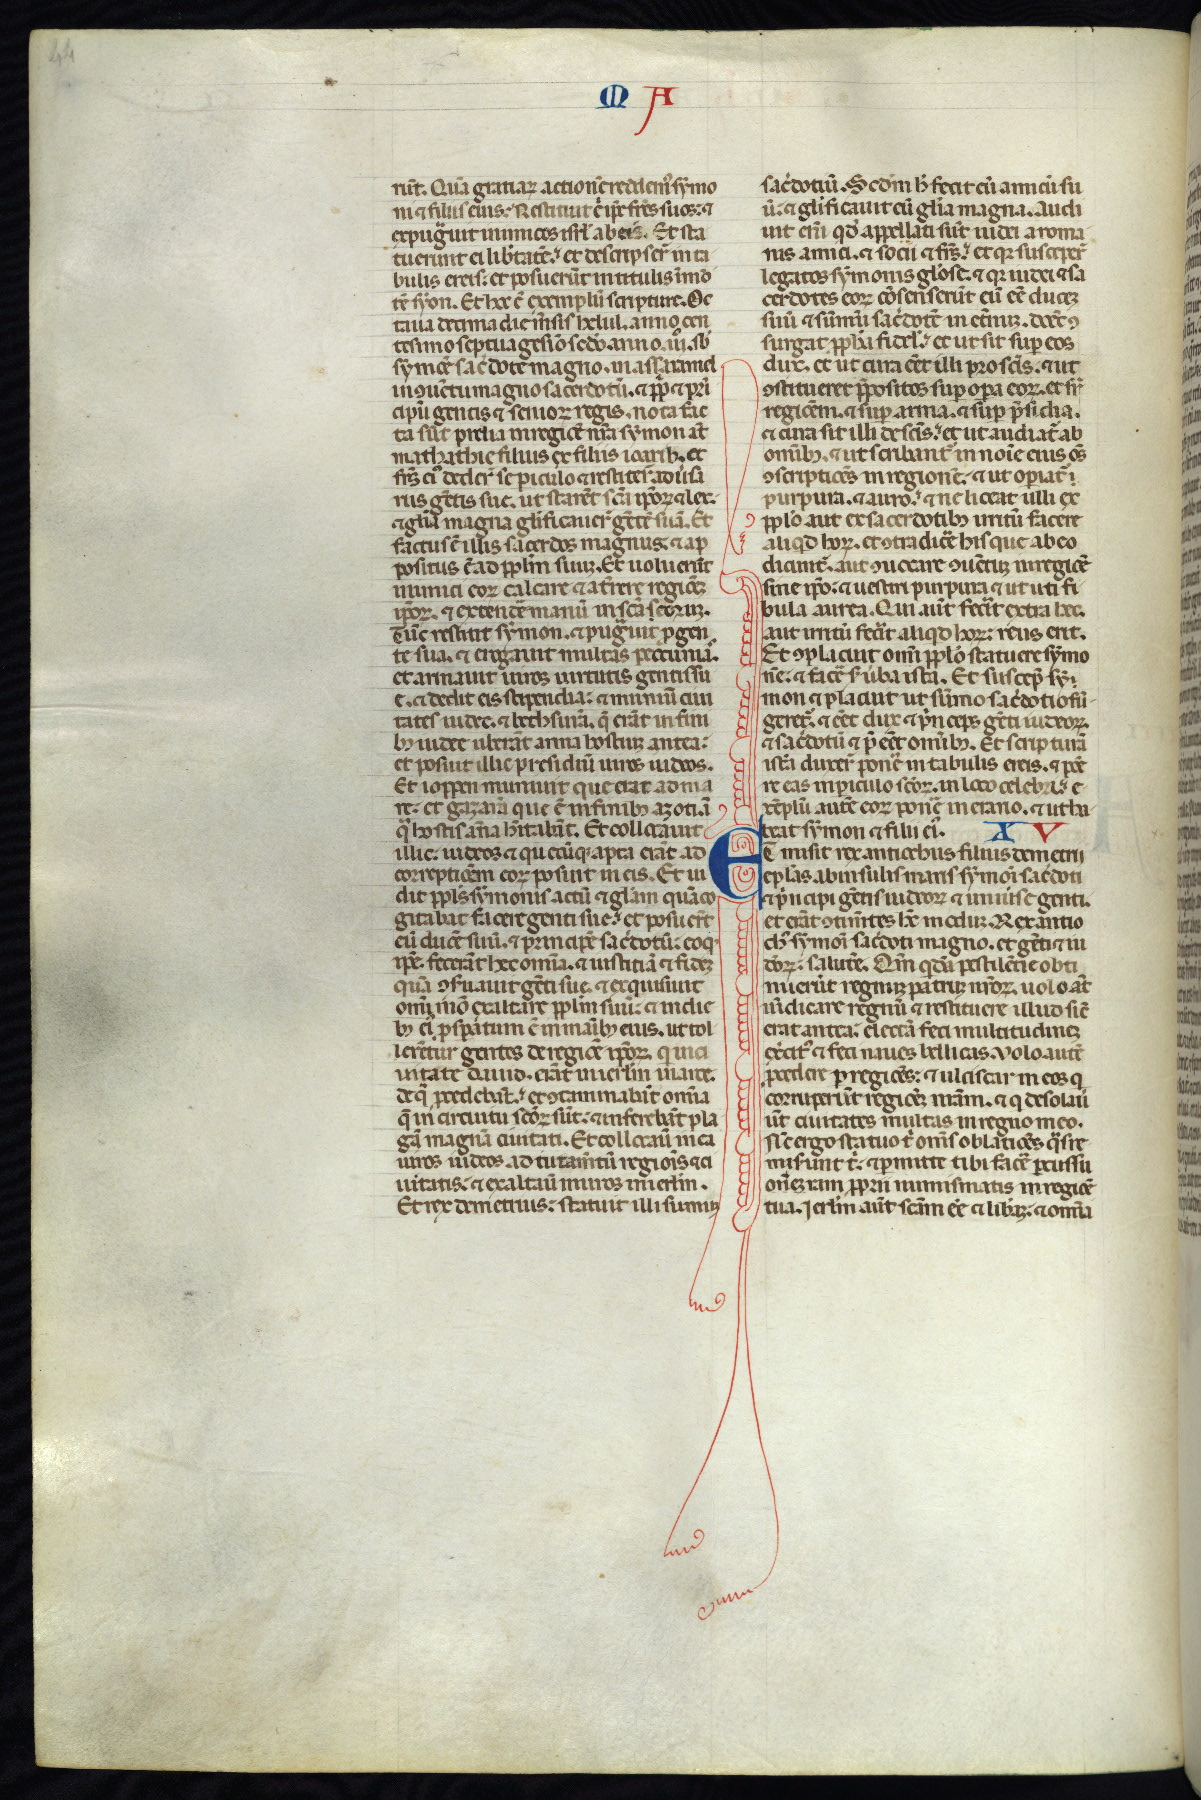 44
M A
rūt. Quā gratiaꝝ actionē reddemꝰ symo
ni ⁊ filiis eius. Restituit .n. ip̄e fr̄es suos. ⁊
expugauit inimicos isrl̄ ab eis. Et sta
tuerunt ei lib̓tatē. et descripser̄ in ta
bulis ereis. et posuerūt in titulis ī mō
te syon. Et hec ē exemplū scripture. Oc
taua decima die mēsis helul. anno cen
tesimo septuagesīo sc̄do anno .iii. sb̓
symōe sac̓dote magno. in assaramel
in ꝯuētu magno sacerdotū. ⁊ ppl̓i ⁊ prī
cipū gentis ⁊ senioꝝ regis. nota fac
ta sūt prelia in regiōe nr̄a symon aūt
mathathie filius ex filiis ioarib. et
fr̄s eiꝰ deder̄ se piculo ⁊ restiter̄ aduersa
riis gētis sue. ut starēt scā ip̄oꝝ ⁊ lex.
⁊ gl̄ia magna gl̄ificauer̄ gētē suā. Et
factus ē illis sacerdos magnus. ⁊ ap
positus ē ad ppl̄m suuꝫ. Et uoluerūt
inimici eoꝝ calcare ⁊ atterere regiōeꝫ
ip̄oꝝ. ⁊ extendē manū in scā eoruꝫ.
Tūc restitit symon. ⁊ pugauit ꝓ gen
te sua. ⁊ erogauit multas peccunias.
et armauit uiros uirtutis gentis su
e. ⁊ dedit eis stipendia. ⁊ muniuit ciui
tates iudee. ⁊ bethsurā. q̄ erāt in fini
bꝫ iudee ubi erāt arma hostiuꝫ antea.
et posuit illic presidiū uiros iudeos.
Et ioppen muniuit que erat ad ma
re. et gazarā que ē in finibꝫ azoti. ī
q̄ hostis añ̄a h̓itabāt. Et collocauit
illic. iudeos ⁊ quecūqꝫ apta erāt ad
correptiōem eoꝝ posuit in eis. Et ui
dit ppl̓s symonis actū ⁊ gl̄iam quā co
gitabat facere genti sue. et posuerūt
eū ducē suū. ⁊ principē sac̓dotū. eo qꝫ
ip̄e fecerat hec om̄ia. ⁊ iustitiā ⁊ fideꝫ
quā ꝯseruauit gēti sue. ⁊ exquisiuit
om̄i mō exaltare ppl̄m suū. ⁊ in die
bꝫ eiꝰ ꝓsperatum ē in manibꝫ eius. ut tol
lerētur gentes de regiōe ip̄oꝝ. ⁊ qui ī ci
uitate dauid. erāt in ierl̄m in arce.
de qͣ ꝓcedebāt. et ꝯtaminabāt om̄ia
q̄ in circuitu scōꝝ sūt. ⁊ inferebāt pla
gā magnā ciuitati. Et collocauit in ea
uiros iudeos ad tutamētū regiōis ⁊ ci
uitatis. ⁊ exaltauit muros in ierl̄m.
Et rex demetrius. statuit illi summuꝫ
sac̓dotiū. Scdm h̓ fecit eū amicū su
ū. ⁊ gl̄ificauit eū gl̄ia magna. Audi
uit eni qd̓ appellati sūt iudei a roma
nis amici. ⁊ socii ⁊ fr̄s. et qꝛ susceper̄
legatos symonis gl̄iose. ⁊ qꝛ iudei ⁊ sa
cerdotes eoꝝ cōsenserūt eū eē duceꝫ
suū ⁊ summū sac̓dotē in et̓nuꝫ. donec ꝯ
surgat ppha fidel̓. et ut sit sup eos
dux. et ut cura eēt illi pro scis. ⁊ ut
ꝯstitueret p̄positos sup opa eoꝝ. et sr̄
regiōem. ⁊ sup arma. ⁊ sup p̄sidia.
⁊ cura sit illi de scis. et ut audiat̄ ab
om̄ibꝫ. ⁊ ut scribant̄ in noīe eius oēs
ꝯscriptiōes in regione. ⁊ ut opiat̄
purpura. ⁊ auro. ⁊ ne liceat ulli ex
ppl̓o aut ex sacerdotibꝫ irritū facere
aliqd hoꝝ. et ꝯtradicē his que ab eo
dicunt̄. aut ꝯuocare ꝯuentū in regiōe
sine ip̄o. ⁊ uestiri purpura ⁊ ut uti fi
bula aurea. Qui aūt fec̓it extra hec.
aut irritū fec̓it aliqd hoꝝ. reus erit.
Et ꝯplacuit om̄i ppl̓o statuere symo
nē. ⁊ facē s̄ uba ista. Et suscep̄ sy
mon ⁊ placuit ut sūmo sac̓dotio fū
geret̄. ⁊ eēt dux ⁊ p̄nceps gēti iudeoꝝ.
⁊ sac̓dotū ⁊ p̄eēt om̄ibꝫ. Et scripturā
istā dixer̄ ponē in tabulis ereis. ⁊ pōe
re eas in piculo scōꝝ. in loco celebri. e
xēplū autē eoꝝ ponē in erario. ⁊ ut ha
beat symon ⁊ filii eiꝰ. X V
Et misit rex antiochus filius demetrii
epl̓as. ab insulis maris symōi sac̓doti
⁊ p̄ncipi gētis iudeoꝝ ⁊ uniuse genti.
et erāt ꝯtinētes hc̄ moduꝫ. Rex antio
chꝰ symōi sac̓doti magno. et gēti iu
deoꝝ. salutē. Qm̄ qdā pestilētie obti
nuerūt regnuꝫ patruꝫ nr̄oꝝ. uolo aūt
uīdicare regnū ⁊ restituere illud sic̄
erat antea. electā feci multitudineꝫ
exercitꝰ ⁊ feci naues bellicas. Volo autē
ꝓcedere p regiōeꝫ. ⁊ ulciscar in eos q
corruperūt regiōeꝫ nr̄am. ⁊ q desolaue
rūt ciuitates multas in regno meo.
N̄c ergo statuo t̄ om̄s oblatiōes qͣs re
miserunt t̄. ⁊ pmitte tibi facē pcussu
rā ꝓprii numismatis in regiōe
tua. Ierl̄m aūt scām eē ⁊ lib̓aꝫ. ⁊ om̄ia